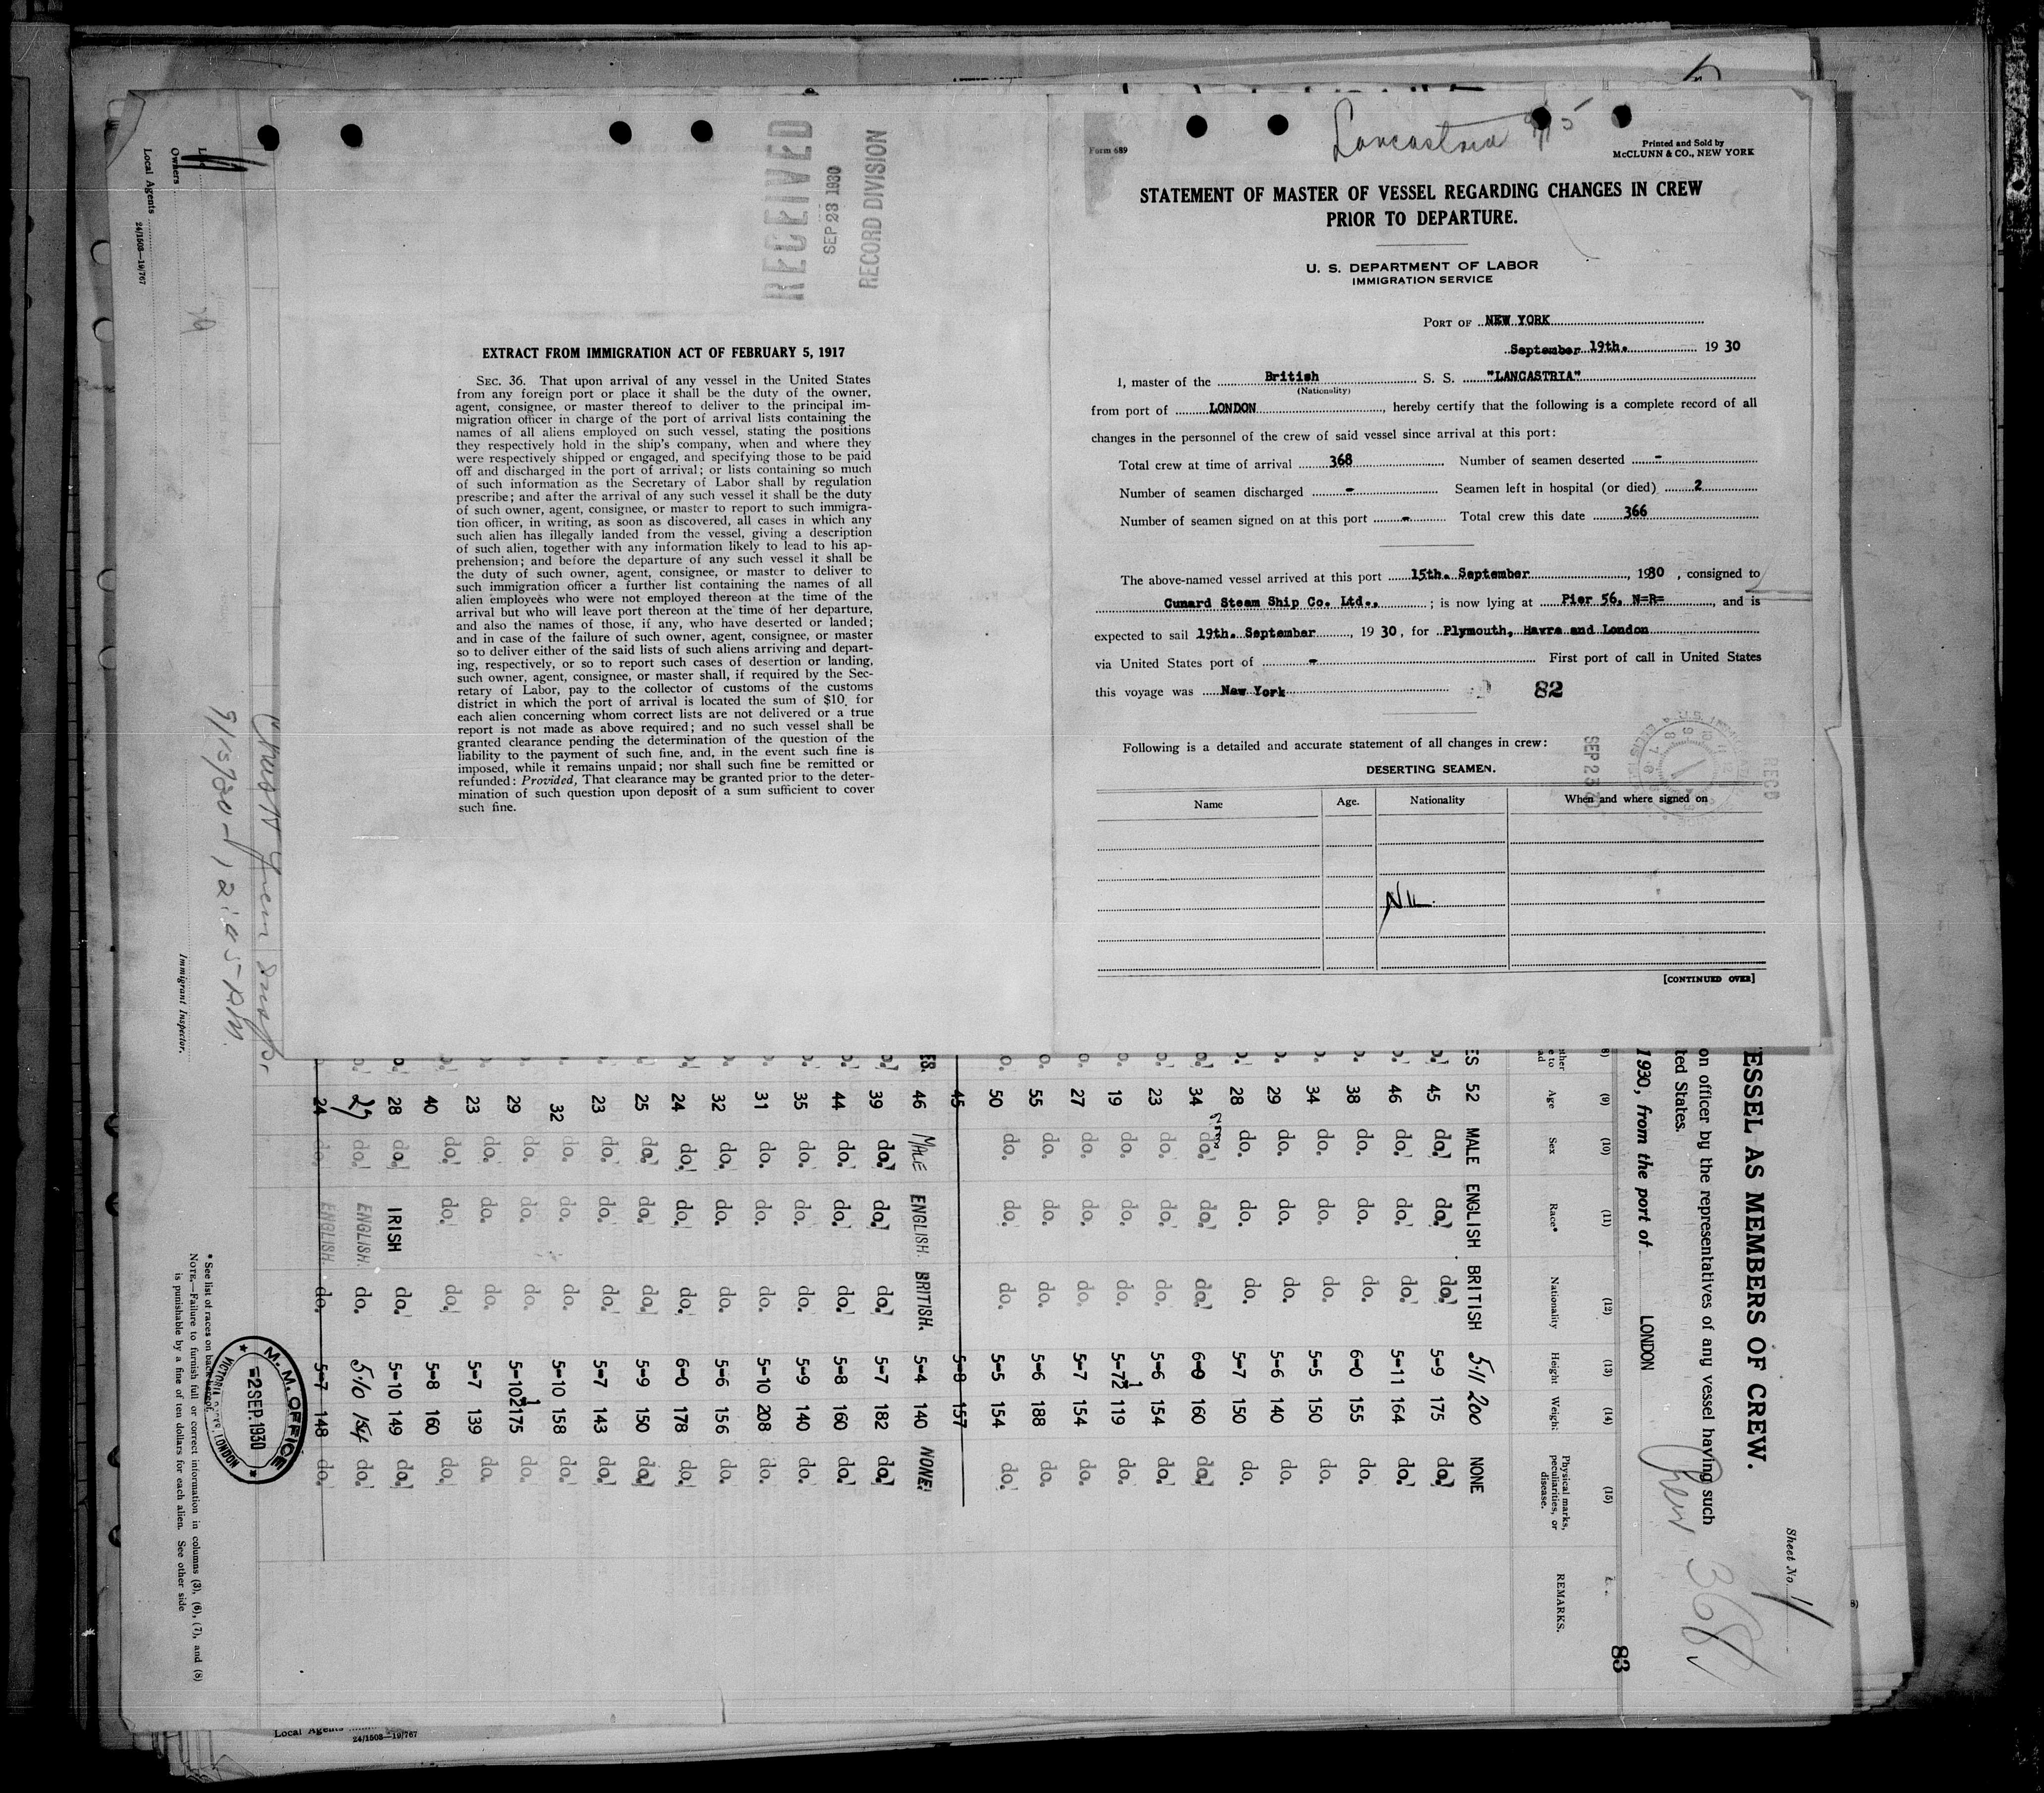 Local Agents
24/1503—19/767
Owners
RECEIVED
SEP 23 1930
RECORD DIVISION
EXTRACT FROM IMMIGRATION ACT OF FEBRUARY 5, 1917
SEC. 36. That upon arrival of any vessel in the United States
from any foreign port or place it shall be the duty of the owner,
agent, consignee, or master thereof to deliver to the principal im-
migration officer in charge of the port of arrival lists containing the
names of all aliens employed on such vessel, stating the positions
they respectively hold in the ship's company, when and where they
were respectively shipped or engaged, and specifying those to be paid
off and discharged in the port of arrival; or lists containing so much
of such information as the Secretary of Labor shall by regulation
prescribe; and after the arrival of any such vessel it shall be the duty
of such owner, agent, consignee, or master to report to such immigra-
tion officer, in writing, as soon as discovered, all cases in which any
such alien has illegally landed from the vessel, giving a description
of such alien, together with any information likely to lead to his ap-
prehension; and before the departure of any such vessel it shall be
the duty of such owner, agent, consignee, or master to deliver to
such immigration officer a further list containing the names of all
alien employees who were not employed thereon at the time of the
arrival but who will leave port thereon at the time of her departure,
and also the names of those, if any, who have deserted or landed;
and in case of the failure of such owner, agent, consignee, or master
so to deliver either of the said lists of such aliens arriving and depart-
ing, respectively, or so to report such cases of desertion or landing,
such owner, agent, consignee, or master shall, if required by the Sec-
retary of Labor, pay to the collector of customs of the customs
district in which the port of arrival is located the sum of $10 for
each alien concerning whom correct lists are not delivered or a true
report is not made as above required; and no such vessel shall be
granted clearance pending the determination of the question of the
liability to the payment of such fine, and, in the event such fine is
imposed, while it remains unpaid; nor shall such fine be remitted or
refunded: Provided, That clearance may be granted prior to the deter-
mination of such question upon deposit of a sum sufficient to cover
such fine.
Form 689
Lancastria
Printed and Sold by
McCLUNN & CO., NEW YORK
STATEMENT OF MASTER OF VESSEL REGARDING CHANGES IN CREW
PRIOR TO DEPARTURE.
U. S. DEPARTMENT OF LABOR
IMMIGRATION SERVICE
PORT OF NEW YORK
September 19th. 19 30
I, master of the British S. S. "LANCASTRIA"
(Nationality)
from port of LONDON, hereby certify that the following is a complete record of all
changes in the personnel of the crew of said vessel since arrival at this port:
Total crew at time of arrival 368 Number of seamen deserted -
Number of seamen discharged - Seamen left in hospital (or died) 2
Number of seamen signed on at this port - Total crew this date 366
The above-named vessel arrived at this port 15th. September, 1930, consigned to
Cunard Steam Ship Co. Ltd., ; is now lying at Pier 56, N=R=, and is
expected to sail 19th. September, 19 30, for Plymouth, Havre and London
via United States port of - First port of call in United States
this voyage was New York
82
Following is a detailed and accurate statement of all changes in crew:
SEP 23
RECD
DESERTING SEAMEN.
Name Age. Nationality When and where signed on
NIL.
[CONTINUED OVER]
Immigrant Inspector.
Sheet No. 1
ESSEL AS MEMBERS OF CREW.
on officer by the representatives of any vessel having such
ted States.
Crew 368
1930, from the port of LONDON
83
(9) (10) (11) (12) (13) (14) (15)
Age Sex Race* Nationality Height Weight Physical marks, peculiarities, or disease. REMARKS.
ES 52 MALE ENGLISH BRITISH 5.11 200 NONE
do. 45 do. do. do. 5=9 175 do.
46 do. do. do. 5=11 164 do.
38 do. do. do. 6=0 155 do.
34 do. do. do. 5=5 150 do.
29 do. do. do. 5=6 140 do.
28 do. do. do. 5=7 150 do.
34 do. do. do. 6=0 160 do.
23 do. do. do. 5=6 154 do.
19 do. do. do. 5=7½ 119 do.
27 do. do. do. 5=7 154 do.
55 do. do. do. 5=6 188 do.
50 do. do. do. 5=5 154 do.
45 5=8 157
ES. 46 MALE ENGLISH. BRITISH. 5=4 140 NONE.
39 do. do. do. 5=7 182 do.
44 do. do. do. 5=8 160 do.
35 do. do. do. 5=9 140 do.
31 do. do. do. 5=10 208 do.
32 do. do. do. 5=6 156 do.
24 do. do. do. 6=0 178 do.
25 do. do. do. 5=9 150 do.
23 do. do. do. 5=7 143 do.
32 do. do. do. 5=10 158 do.
29 do. do. do. 5=10½ 175 do.
23 do. do. do. 5=7 139 do.
40 do. do. do. 5=8 160 do.
28 do. IRISH do. 5=10 149 do.
27 do. ENGLISH. do. 5.10 154 do.
24 do. ENGLISH. do. 5=7 148 do.
* See list of races on back hereof.
NOTE.—Failure to furnish full or correct information in columns (3), (6), (7), and (8)
is punishable by a fine of ten dollars for each alien. See other side
M. M. OFFICE
=2SEP.1930
VICTORIA DOCKS, LONDON
Local Agents
24/1503—19/767